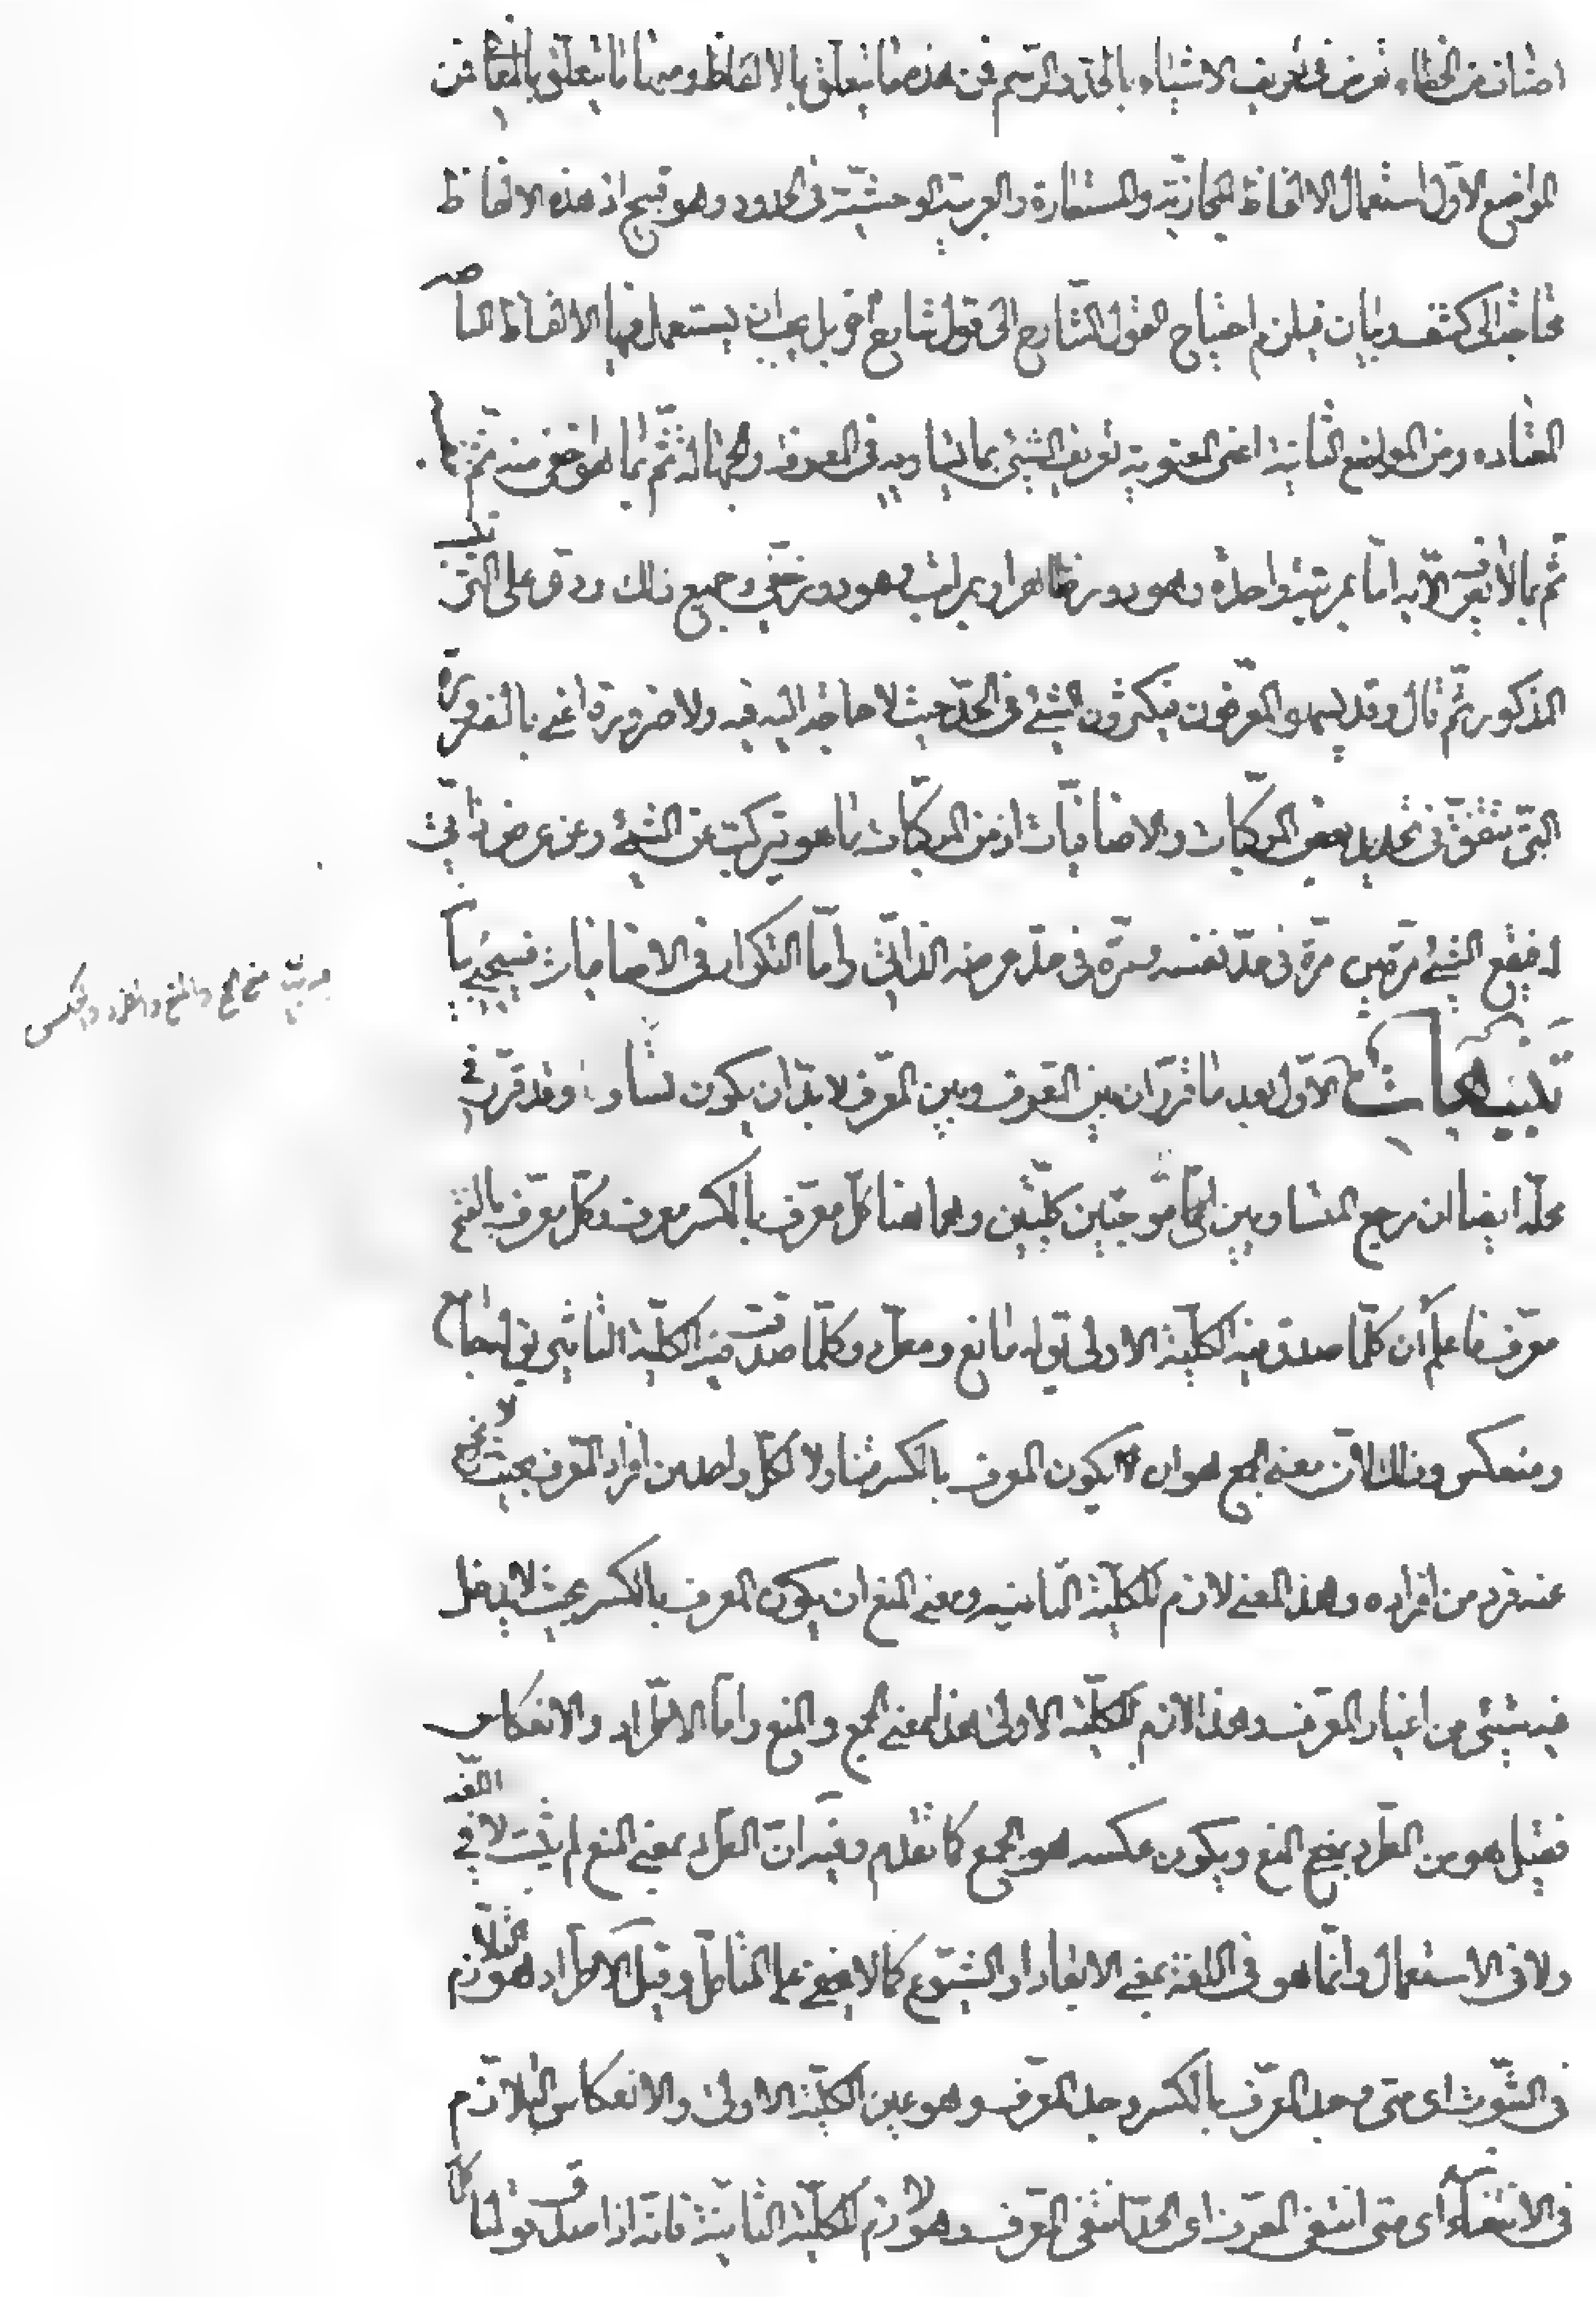 اصناف من الخطاء تعرض فى تعريف الاشياء بالحد والرسم فمن هذه ما يتعلق بالالفاظ ومنها ما يتعلق بالمعانى فمن
المواضع الاول استعمال الالفاظ المجازية والمستعارة والغريبة الوحشية فى الحدود وهو قبيح اذ هذه الالفاظ
محتاجة الى كشف وبيان فيلزم احتياج القول الشارح الى قول شارح آخر بل يجب ان يستعمل فيها الالفاظ الناصة
المعتاده ومن المواضع الثانية اعنى المعنوية تعريف الشيئ بما يساويه فى المعرفة والجهالة ثم بما هو اخفى منه ثم بنفسه
ثم بما لا يعرف الا به اما بمرتبة واحدة وهو دور ظاهر او بمراتب وهو دور خفى وجميع ذلك ردى على الترتيب
المذكور ثم قال وقد يسهو المعرفون فيكررون الشيئ فى الحد حيث لا حاجة اليه فيه ولا ضرورة اعنى بالضرورة
التى تتفق فى تحديد بعض المركبات والاضافيات اذ من المركبات ما هو يتركب عن الشيئ وعن عرض ذاتى
له فيقع الشيئ مرتين مرة فى حد نفسه ومرة فى حد عرضه الذاتى واما التكرار فى الاضافيات فسيجئ بيانه
تنبيهات الاول بعد ما قرر ان بين المعرف وبين المعرف لابد ان يكون تساو وقد قرر فى
محله ايضا ان مرجع المتساويين الى موجبتين كليتين وهما هنا كل معرف بالكسر معرف وكل معرف بالفتح
معرف فاعلم ان كلما صدق فيه الكلية الاولى يقوله مانع ومطرد وكلما صدقت فيه الكلية الثانية يقوله جامع
ومنعكس وذلك لان معنى الجمع هو ان يكون المعرف بالكسر متناولا لكل واحد من افراد المعرف بحيث لا يخرج
عنه فرد من افراده وهذا المعنى لازم للكلية الثانية ومعنى المنع ان يكون المعرف بالكسر بحيث لا يدخل
فيه شيئ من اغيار المعرف وهذا لازم للكلية الاولى هذا معنى الجمع والمنع واما الاطراد والانعكاس
فقيل هو من الطرد بمعنى المنع ويكون عكسه هو الجمع كما تقدم وفيه ان الطرد بمعنى المنع لم يثبت لا فى اللغة
ولا فى الاستعمال وانما هو فى اللغة بمعنى الابعاد او الشيوع كما لا يخفى على المتأمل وقيل الاطراد هو التلازم
فى الثبوت اى متى وجد المعرف بالكسر وجد المعرف وهو عين الكلية الاولى والانعكاس التلازم
فى الانتفاء اى متى انتفى المعرف اى الحد انتفى المعرف وهو لازم للكلية الثانية فانه اذا صدق قولنا كل